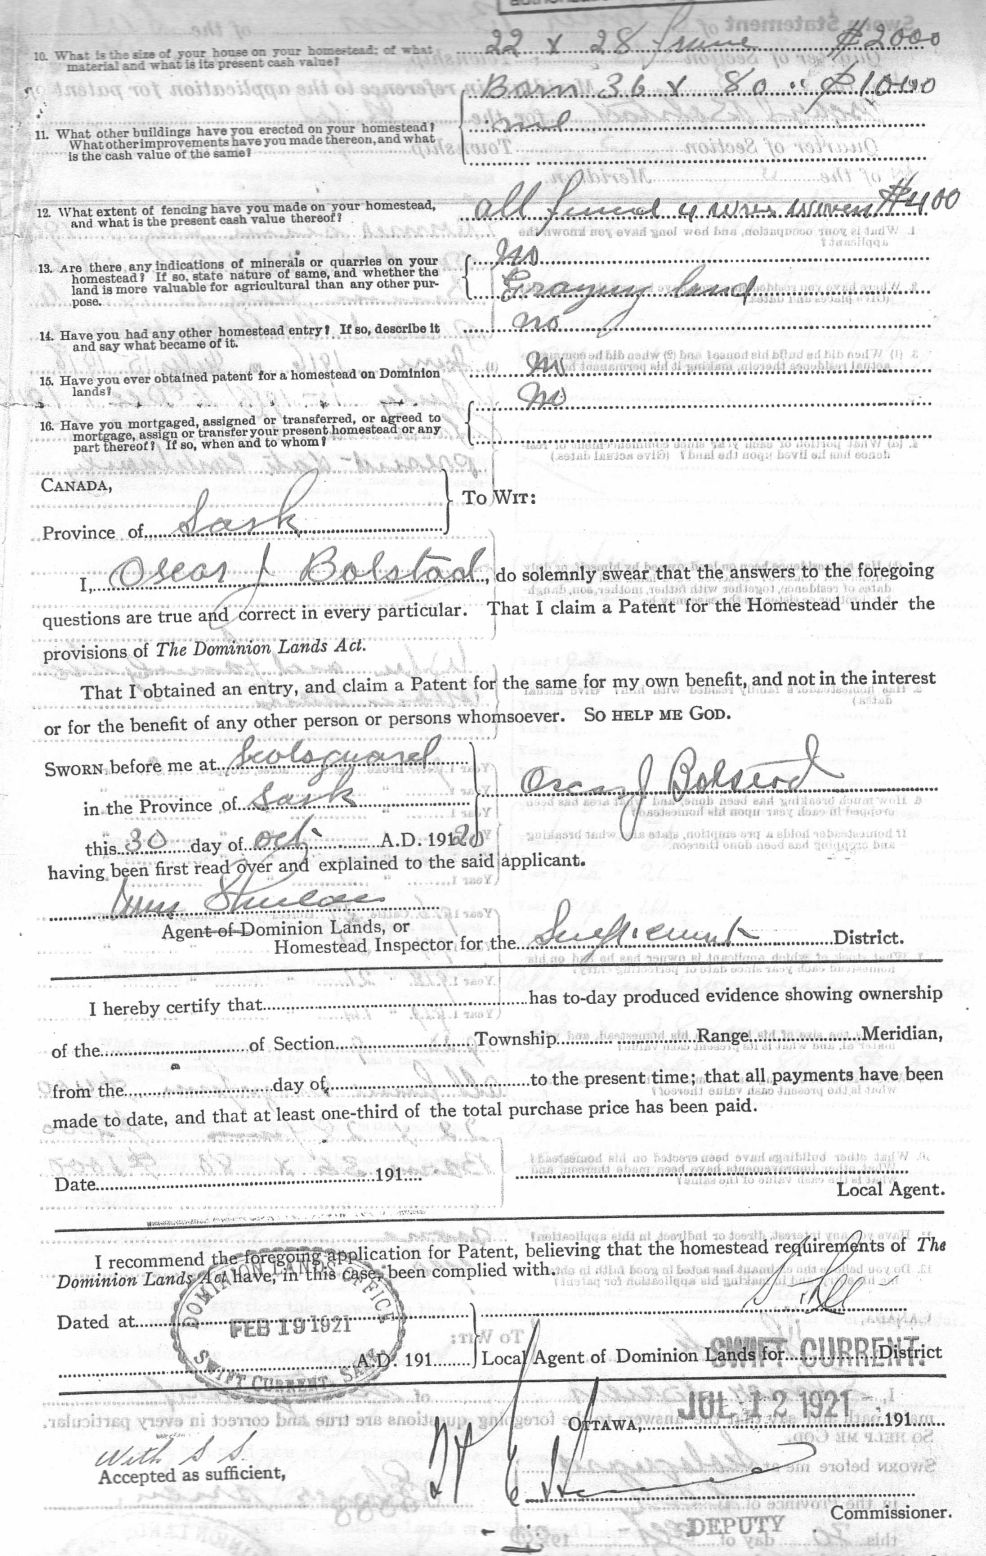 10. What is the size of your house on your homestead: of what material and what is its present cash value? 22 x 28 frame $2000
11. What other buildings have you erected on your homestead? What other improvements have you made thereon, and what is the cash value of the same?
Barn 36 x 80 " $1000
12. What extent of fencing have you made on your homestead, and what is the present cash value thereof? all fenced 4 wire woven $400
13. Are there any indications of minerals or quarries on your homestead? If so, state nature of same, and whether the land is more valuable for agricultural than any other purpose.
No
Grazing land
14. Have you had any other homestead entry? If so, describe it and say what became of it. no
15. Have you ever obtained patent for a homestead on Dominion lands? No
16. Have you mortgaged, assigned or transferred, or agreed to mortgage, assign or transfer your present homestead or any part thereof? If so, when and to whom? No
CANADA,
Province of Sask
TO WIT:
I, Oscar J Bolstad, do solemnly swear that the answers to the foregoing
questions are true and correct in every particular. That I claim a Patent for the Homestead under the
provisions of The Dominion Lands Act.
That I obtained an entry, and claim a Patent for the same for my own benefit, and not in the interest
or for the benefit of any other person or persons whomsoever. SO HELP ME GOD.
SWORN before me at Scotsguard
in the Province of Sask
this 30 day of Oct A.D. 1920
Oscar J Bolstad
having been first read over and explained to the said applicant.
Agent of Dominion Lands, or
Homestead Inspector for the Swift Current District.
I hereby certify that has to-day produced evidence showing ownership
of the of Section Township Range Meridian,
from the day of to the present time; that all payments have been
made to date, and that at least one-third of the total purchase price has been paid.
Date 191
Local Agent.
I recommend the foregoing application for Patent, believing that the homestead requirements of The
Dominion Lands Act have, in this case, been complied with.
Dated at
DOMINION LANDS OFFICE
FEB 19 1921
SWIFT CURRENT, SASK.
A.D. 191
Local Agent of Dominion Lands for SWIFT CURRENT. District
OTTAWA, JUL 12 1921 191
With S S.
Accepted as sufficient,
Commissioner.
DEPUTY